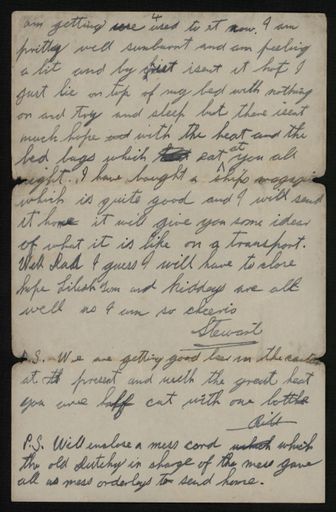 4
am getting used to it now. I am
pretty well sunburnt and am peeling
a lit and by isent it hot I
just lie on top of my bed with nothing
on and try and sleep but there isent
much hope with the heat and the
bed bugs which eat at you all
night. I have bought a ships magazine
which is quite good and I will send
it home it will give you some idear
of what it is like on a transport.
Well Dad I guess I will have to close
hope Lilish Tom and kiddeys are all
well as I am so cheerio
Stewart
P.S. We are getting good beer in the
at present and with the great heat
you are half cut with one bottle
P.S. Will enclose a mess card which
the old dutchy in charge of the mess gave
all us mess orderleys to send home.